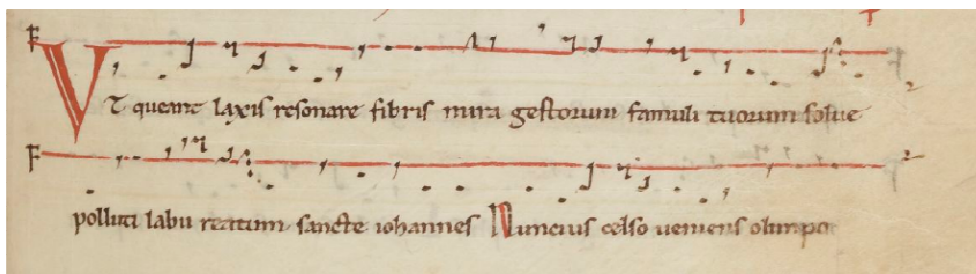 UT queant laxis resonare fibris mira gestorum famuli tuorum solue
polluti labii reatum sancte iohannes Nuncius celso ueniens olimpo